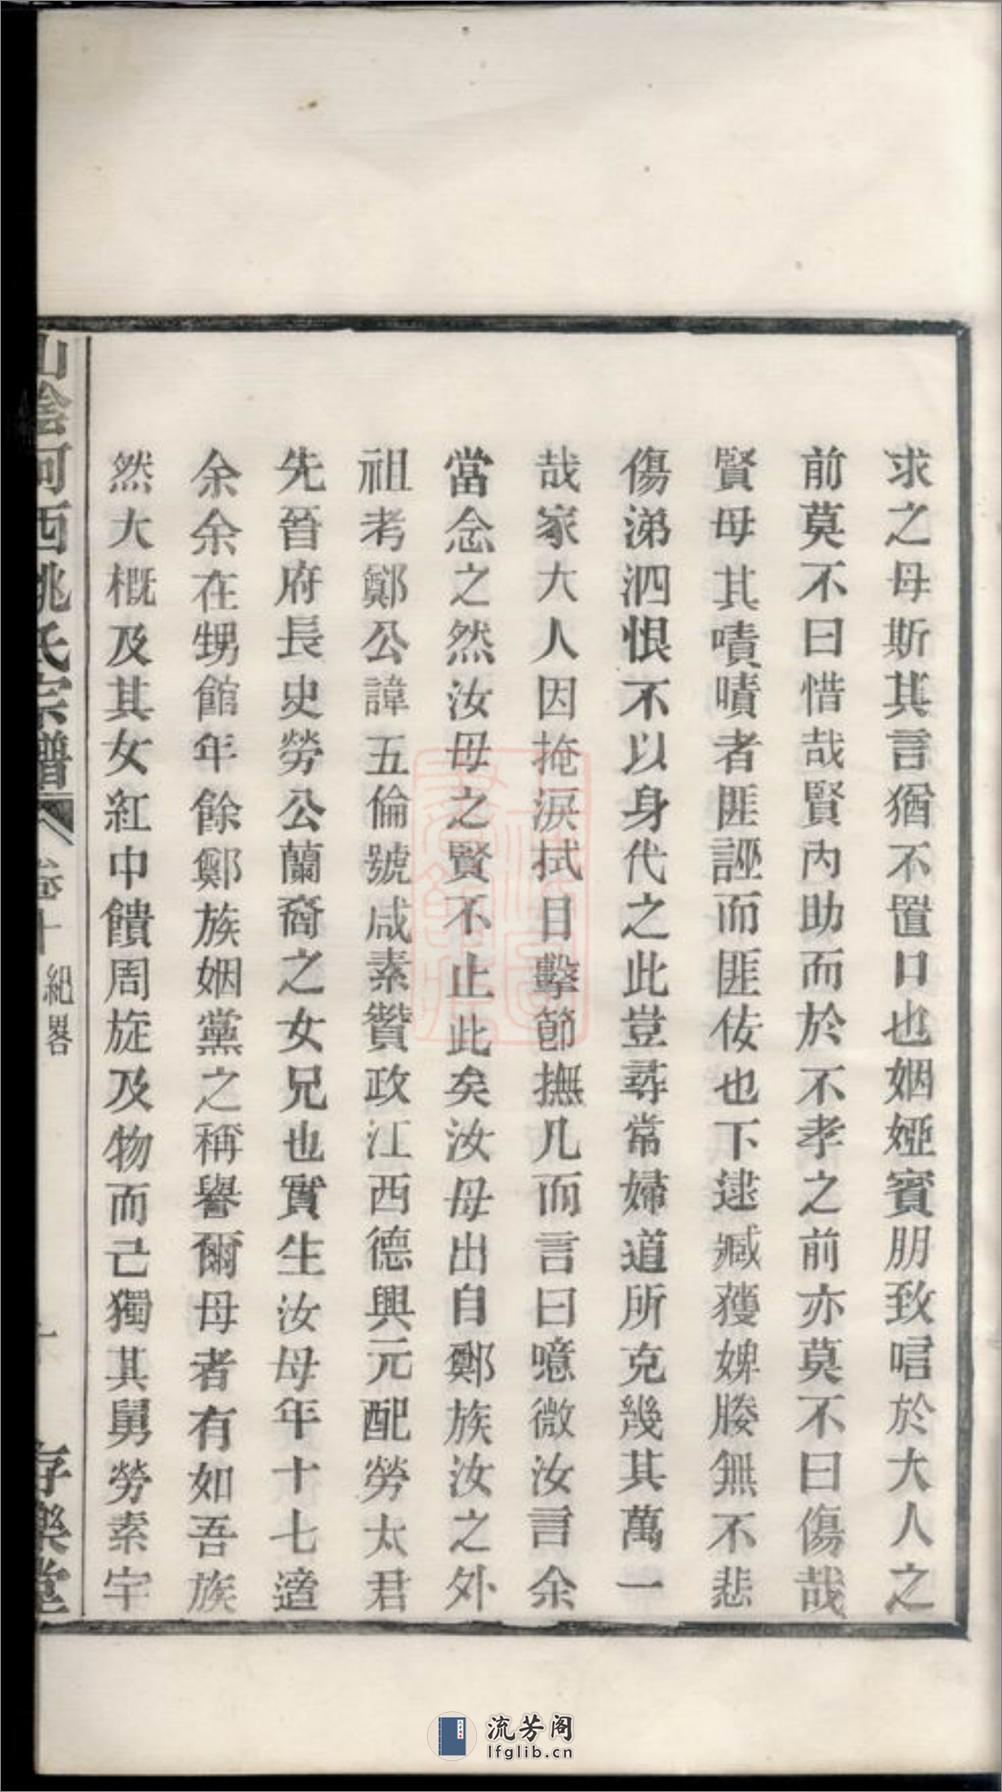 求之母斯其言猶不置口也姻婭賓朋致唁於大人之
前莫不曰惜哉賢內助而於不孝之前亦莫不曰傷哉
賢母其嘖嘖者匪誣而匪佞也下逮臧獲婢媵無不悲
傷涕泗恨不以身代之此豈尋常婦道所克幾其萬一
哉家大人因掩淚拭目擊節撫几而言曰噫微汝言余
當念之然汝母之賢不止此矣汝母出自鄭族汝之外
祖考鄭公諱五倫號咸素贊政江西德興元配勞太君
先晉府長史勞公蘭裔之女兄也實生汝母年十七適
余余在甥館年餘鄭族姻黨之稱譽爾母者有如吾族
然大概及其女紅中饋周旋及物而已獨其舅勞素宇
山陰河西姚氏宗譜 卷十 紀畧 十 存樂堂
流芳阁
lfglib.cn